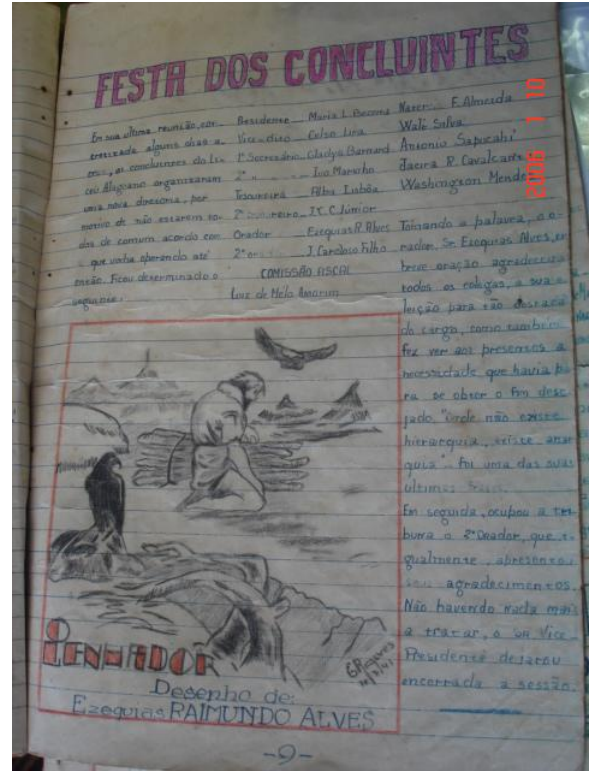 FESTA DOS CONCLUINTES
Em sua ultima reunião, con-
cretizada alguns dias a-
traz, os concluintes do Li-
ceu Alagoano organizaram
uma nova diretoria, por
motivo de não estarem to-
dos de comum acordo com
a que vinha operando até
então. Ficou determinado o
seguinte:
Presidente Maria L.
Vice-dito Celso Lira
1º Secretário Gladys
2º " Ivo
Tesoureira Alba Lisbôa
2º C. Júnior
Orador Ezequias R. Alves
2º J. Cardoso Filho
COMISSÃO FISCAL
Luiz de Melo Amorim
F. Almeida
Silva
Antonio Sapucahi
Jacira R. Cavalcante
Washington
Tomando a palavra, o o-
rador, Sr. Ezequias Alves, em
breve oração agradeceu a
todos os colegas, a sua e-
leição para tão destaca-
do cargo, como tambem
fez ver aos presentes a
necessidade que havia pa-
ra se obter o fim dese-
jado. "Onde não existe
hierarquia, existe anar-
quia" - foi uma das suas
ultimas frases.
Em seguida, ocupou a tri-
buna o 2º Orador, que i-
gualmente, apresentou
seus agradecimentos.
Não havendo nada mais
a tratar, o Sr. Vice
Presidente
encerrada a sessão.
Desenho de:
Ezequias RAIMUNDO ALVES
-9-
2006 1 10